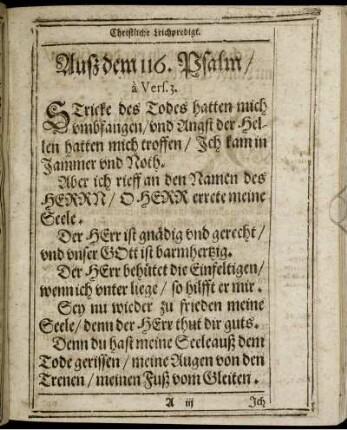 Christliche Leichpredigt.
Auß dem 116. Psalm /
à Vers. 3.
STricke des Todes hatten mich
vmbfangen / vnd Angst der Hel-
len hatten mich troffen / Jch kam in
Jammer vnd Noth.
Aber ich rieff an den Namen des
HERRN / O HERR errete meine
Seele.
Der HErr ist gnädig vnd gerecht /
vnd vnser GOtt ist barmhertzig.
Der HErr behütet die Einfeltigen /
wenn ich vnter liege / so hilfft er mir.
Sey nu wieder zu frieden meine
Seele / denn der HErr thut dir guts.
Denn du hast meine Seele auß dem
Tode gerissen / meine Augen von den
Trenen / meinen Fuß vom Gleiten.
A iij
Jch